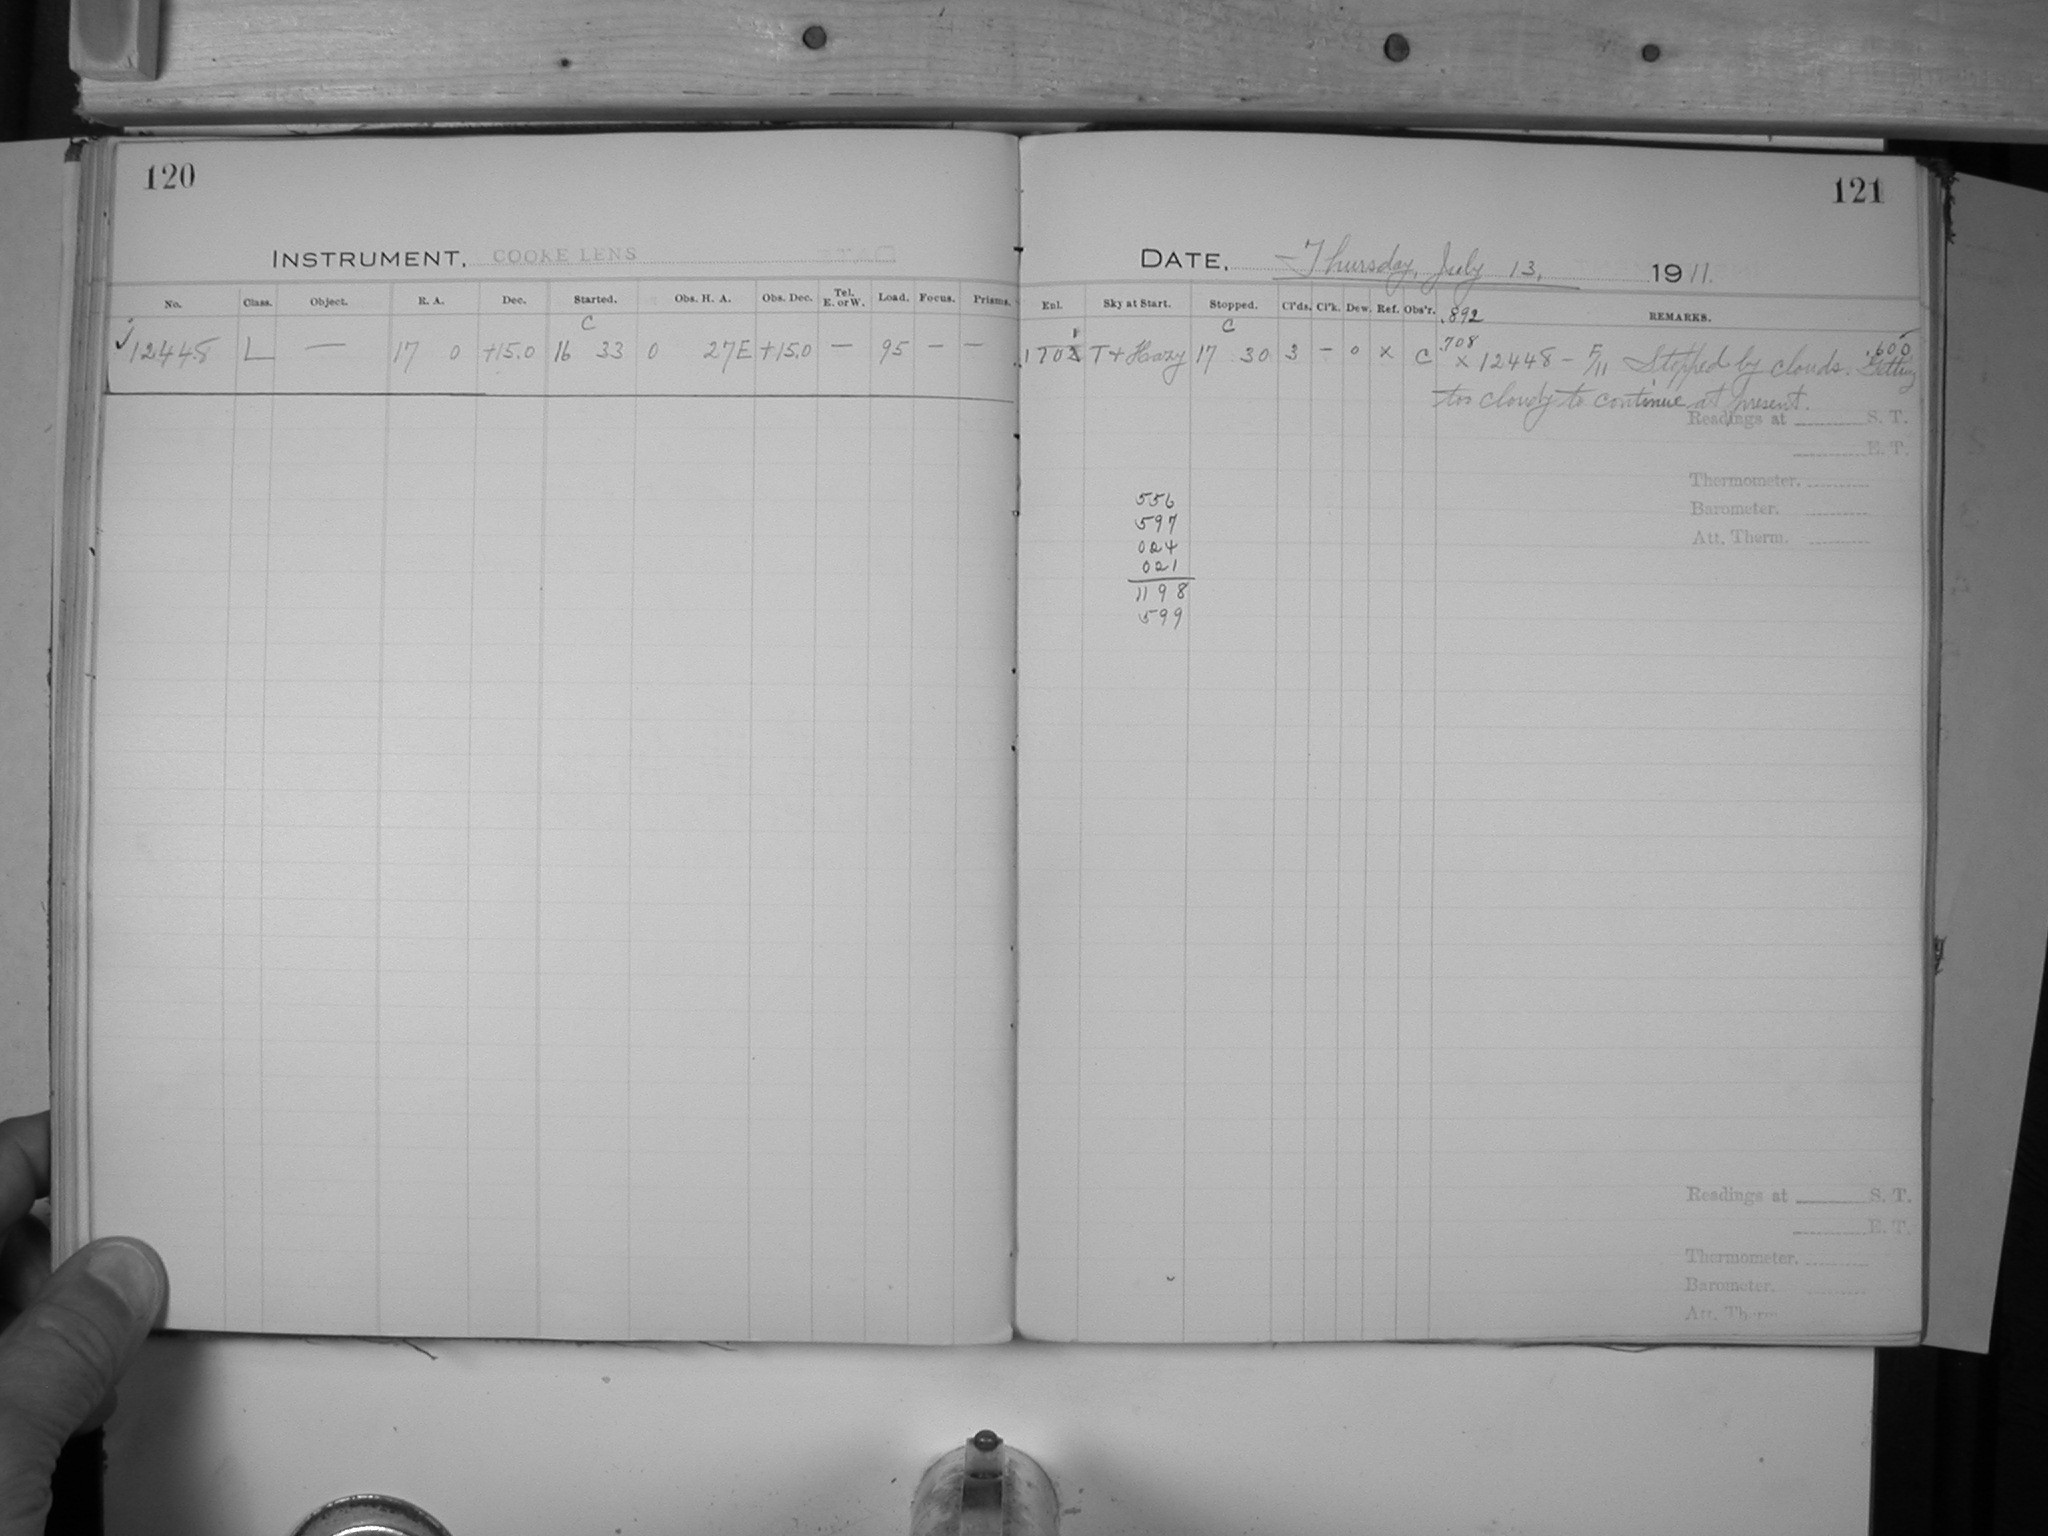 120
INSTRUMENT. COOKE LENS
No. Class. Object. R. A. Dec. Started. Obs. H. A. Obs. Dec. Tel. E. or W. Load. Focus. Prisms.
C
✓ 12448 L — 17 0 +15.0 16 33 0 27E +15.0 — 95 — —
121
DATE. Thursday, July 13, 1911.
Enl. Sky at Start. Stopped. Cl'ds. Cl'k. Dew. Ref. Obs'r. .892 REMARKS.
C .708 .600
T + Hazy 17 30 3 — 0 x C x 12448 — F/11 Stopped by clouds. Getting
too cloudy to continue at present.
Readings at S. T.
E. T.
Thermometer.
Barometer.
Att. Therm.
556
597
024
021
1198
599
Readings at S. T.
E. T.
Thermometer.
Barometer.
Att. Therm